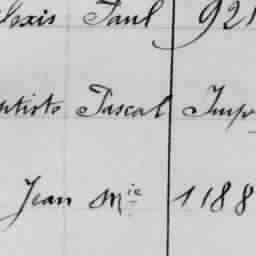 lexis Paul 921
ptiste Pascal Imp
Jean Mie 1188